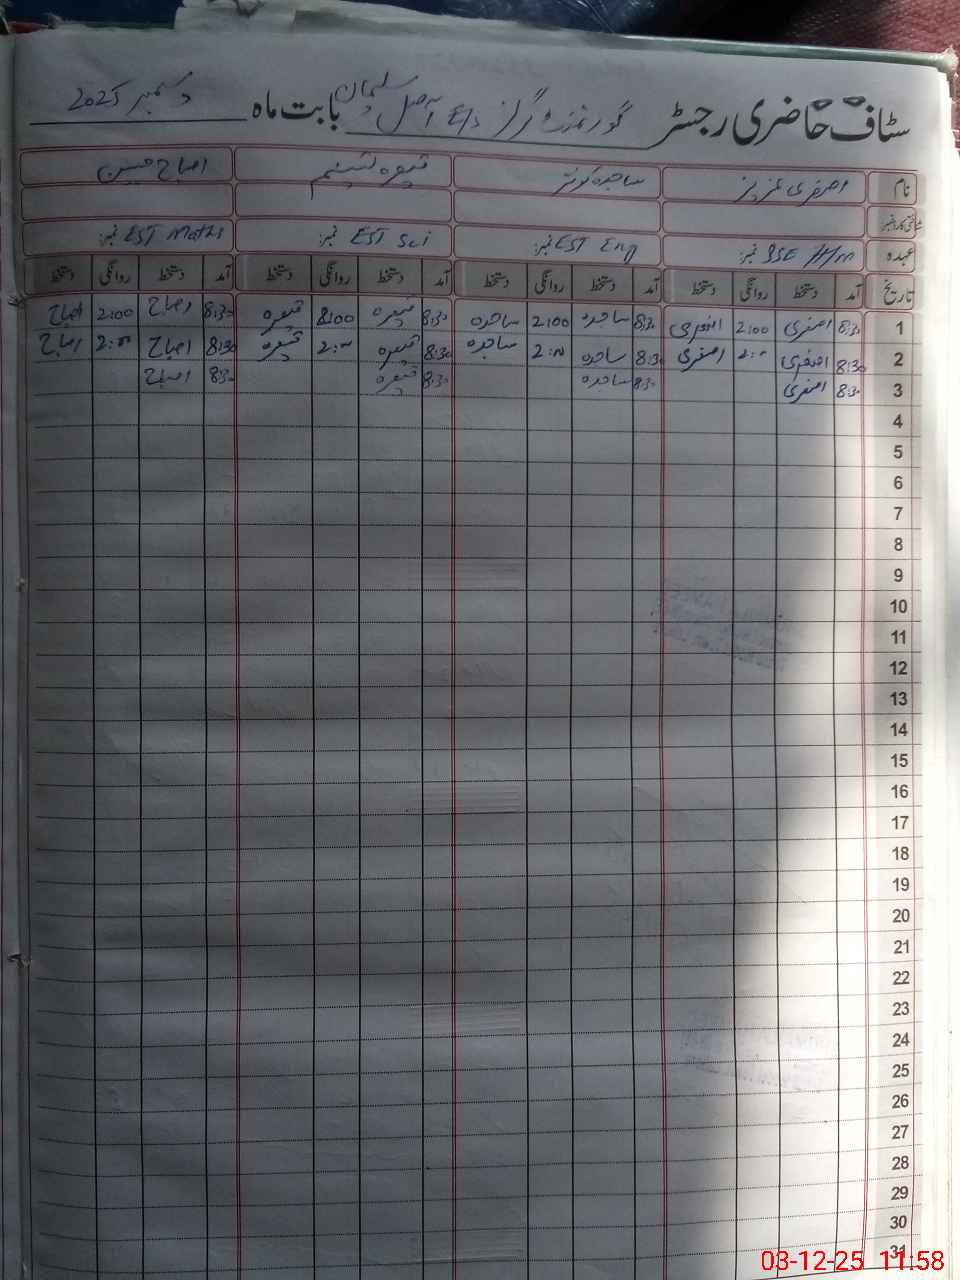 سٹاف حاضری رجسٹر گورنمنٹ گرلز بابت ماہ دسمبر 2025
نام اصغری عزیز ساجدہ کوثر اصباح
عہدہ SSE نمبر: EST Eng نمبر: EST Sci نمبر: EST Maths نمبر:
تاریخ آمد دستخط روانگی دستخط آمد دستخط روانگی دستخط آمد دستخط روانگی دستخط آمد دستخط روانگی دستخط
1 8:30 اصغری 2:00 اصغری 8:30 ساجدہ 2:00 ساجدہ 8:30 8:00 8:30 اصباح 2:00 اصباح
2 8:30 اصغری اصغری 8:30 ساجدہ ساجدہ 8:30 8:30 اصباح اصباح
3 8:30 اصغری 8:30 ساجدہ 8:30 8:30 اصباح
4
5
6
7
8
9
10
11
12
13
14
15
16
17
18
19
20
21
22
23
24
25
26
27
28
29
30
31
03-12-25 11:58